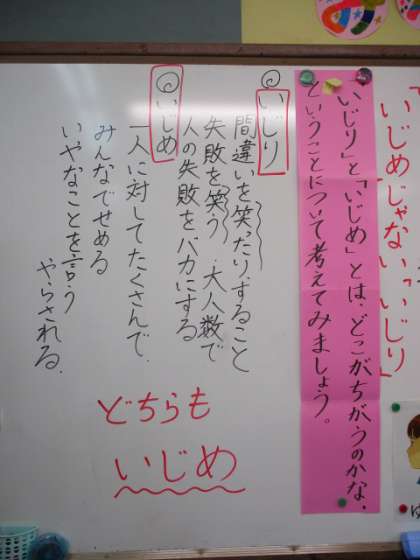 「いじめじゃない、いじり」
「いじり」と「いじめ」とは、どこがちがうのかな、
ということについて考えてみましょう。
◎いじり
間違いを笑ったりすること
失敗を笑う、大人数で
人の失敗をバカにする
◎いじめ
一人に対してたくさんで、
みんなでせめる
いやなことを言う
やらされる、
どちらも
いじめ